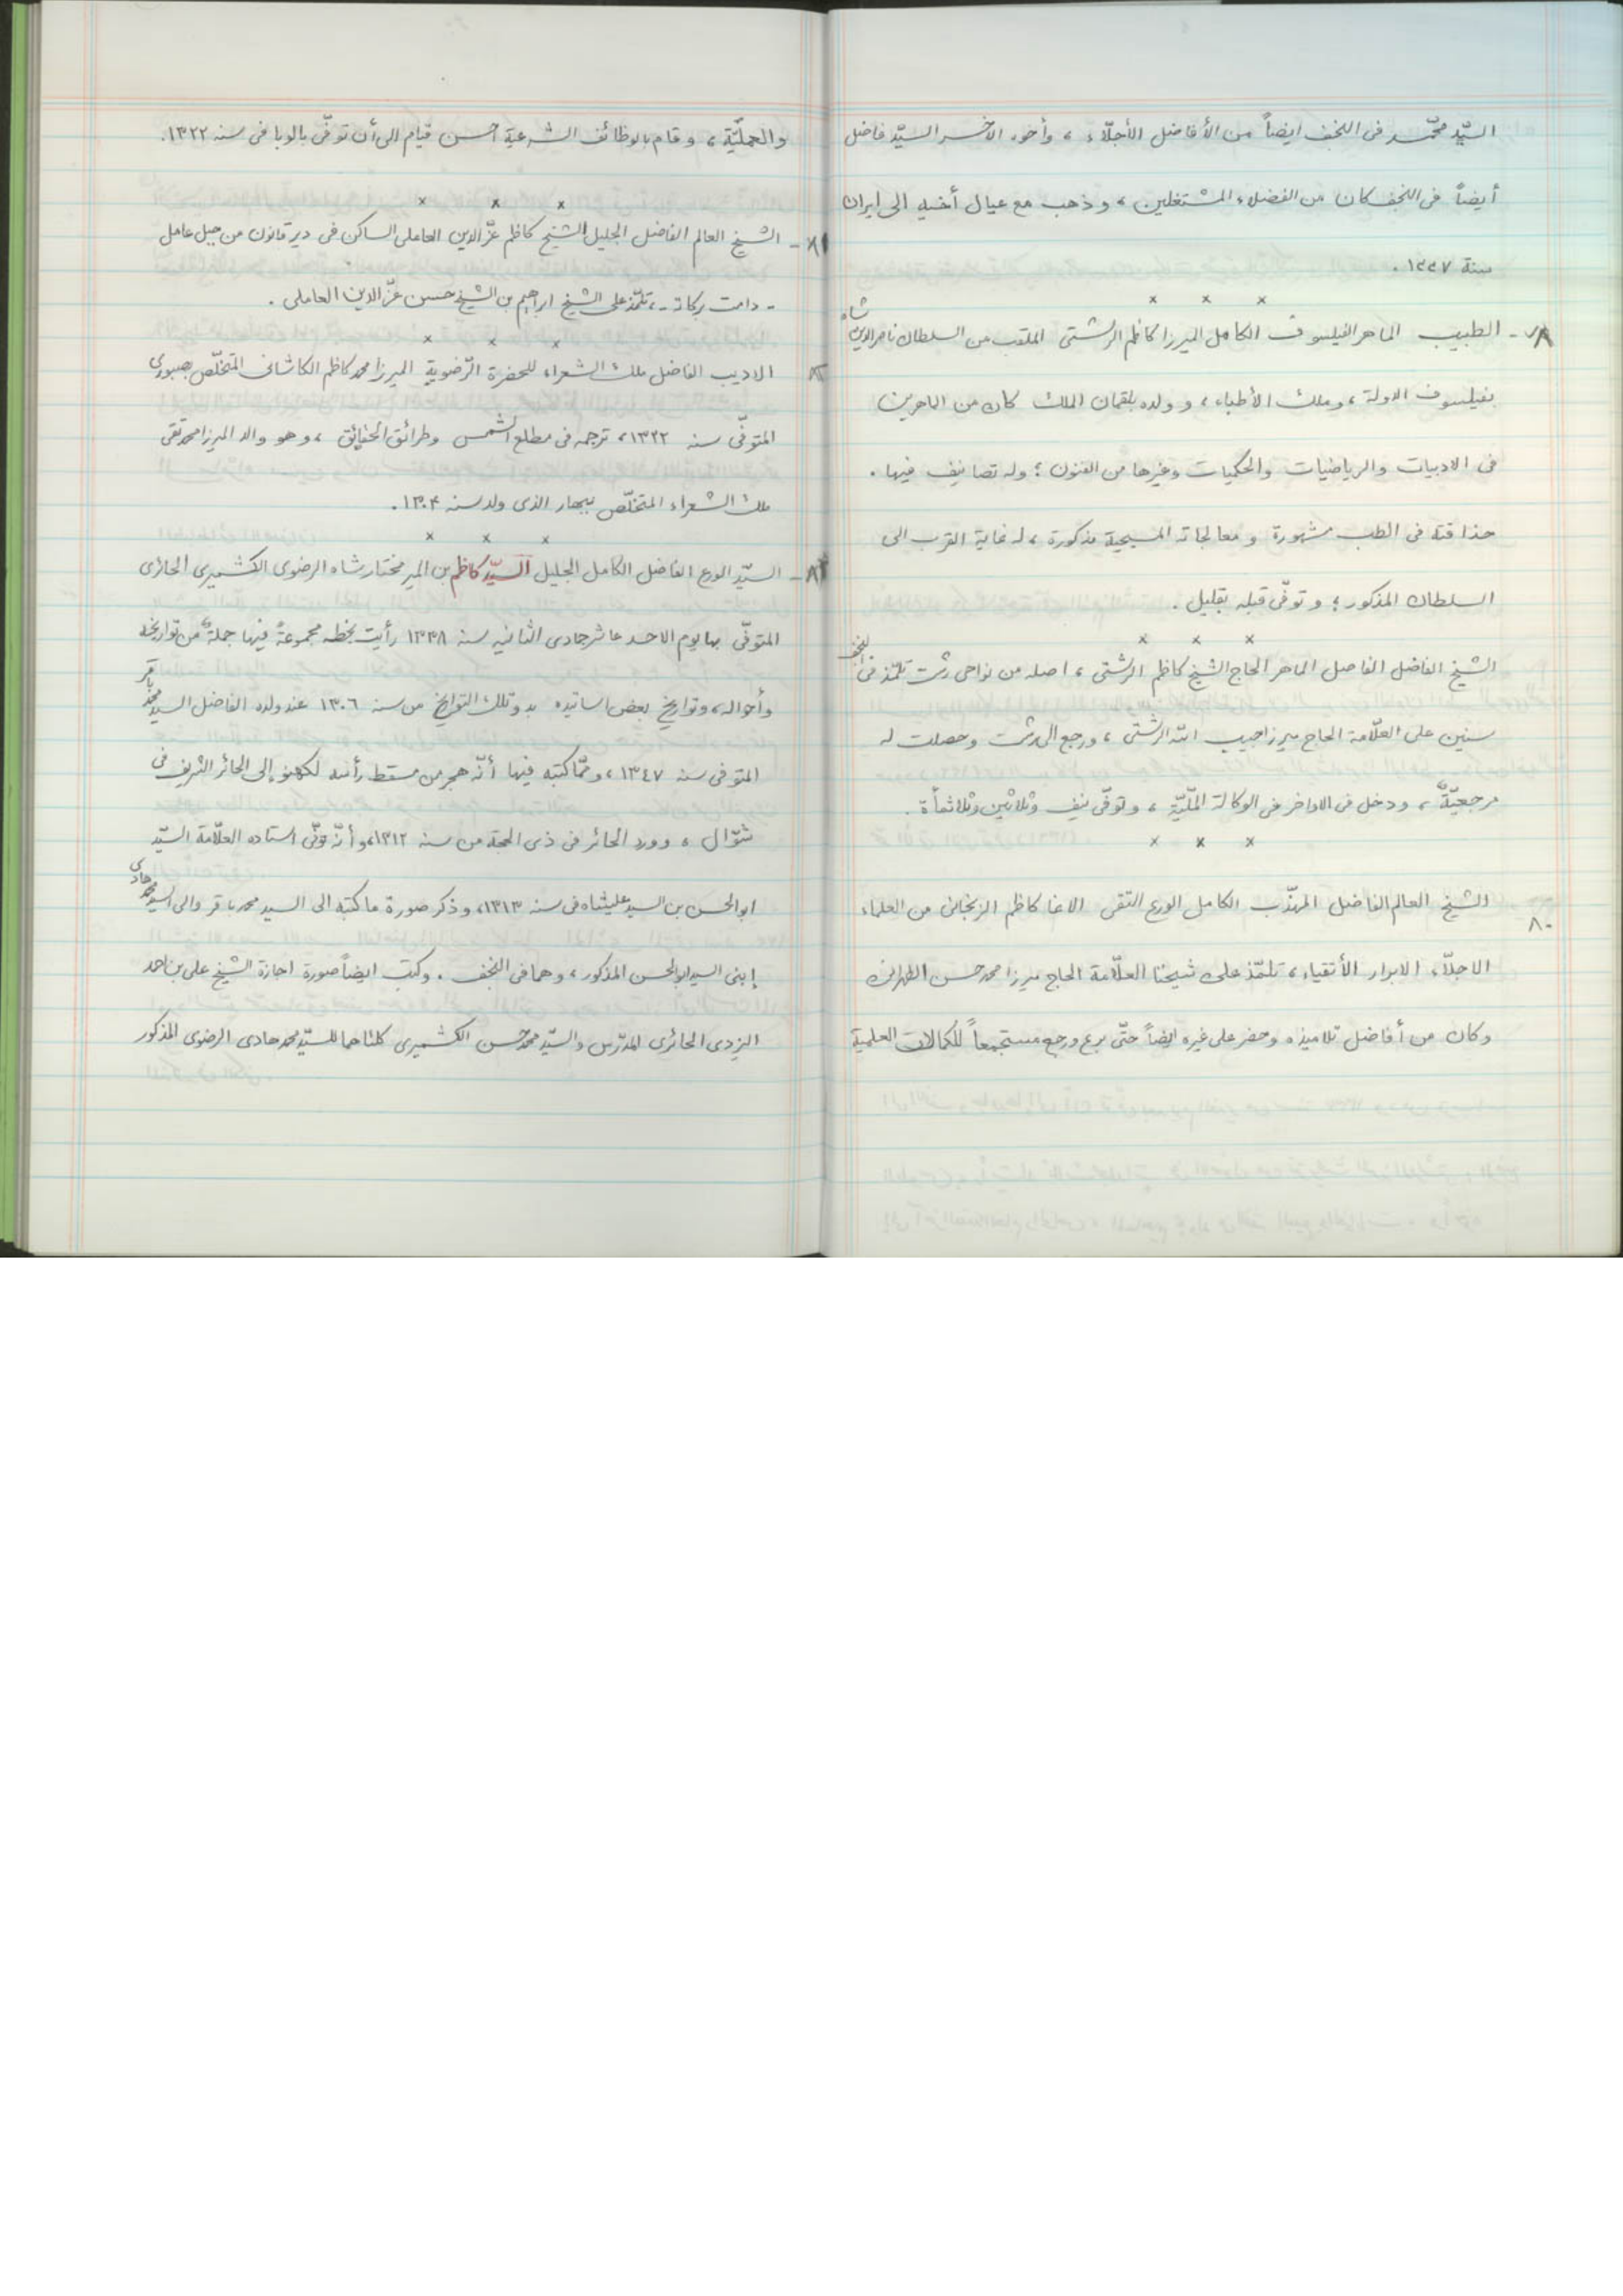 السيّد محمّد فى النجف ايضاً من الأفاضل الأجلّاء ، وأخوه الآخر السيّد فاضل
أيضاً فى النجف كان من الفضلاء المشتغلين ، وذهب مع عيال أخيه الى ايران
سنة ١٣٣٧ .
× × ×
٧٨ - الطبيب الماهر الفيلسوف الكامل الميرزا كاظم الرشتى الملقب من السلطان ناصر الدين شاه
بفيلسوف الدولة ، وملك الأطباء ، وولده بلقمان الملك كان من الماهرين
فى الادبيات والرياضيات والحكميات وغيرها من الفنون ؛ وله تصانيف فيها .
حذاقته فى الطب مشهورة و معالجاته المسيحية مذكورة ، له غاية القرب الى
السلطان المذكور ؛ و توفّى قبله بقليل .
× × ×
الشيخ الفاضل الفاصل الماهر الحاج الشيخ كاظم الرشتى ، اصله من نواحى رشت تلمّذ فى النجف
سنين على العلّامة الحاج ميرزا حبيب الله الرشتى ، ورجع الى رشت وحصلت له
مرجعيّةٌ ، ودخل فى الاواخر فى الوكالة الملّيّة ، وتوفّى نيف وثلاثين وثلاثمأة .
× × ×
٨٠ الشيخ العالم الفاضل المهذّب الكامل الورع التقى الاغا كاظم الزنجانى من العلماء
الاجلّاء الابرار الأتقياء ، تلمّذ على شيخنا العلّامة الحاج ميرزا محمد حسن الطهرانى
وكان من أفاضل تلاميذه وحضر على غيره ايضاً حتّى برع ورجع مستجمعاً للكمالات العلمية
والعمليّة ، وقام بالوظائف الشرعية أحسن قيام الى أن توفّى بالوبا فى سنه ١٣٢٢.
× × ×
٨١ - الشيخ العالم الفاضل الجليل الشيخ كاظم عزّالدين العاملى الساكن فى دير قانون من جبل عامل
- دامت بركاته - ، تلمّذ على الشيخ ابراهيم بن الشيخ حسن عزّالدين العاملى .
× × ×
٨٢ الاديب الفاضل ملك الشعراء للحضرة الرّضوية الميرزا محمد كاظم الكاشانى المتخلّص بصبورى
المتوفّى سنه ١٣٢٢ ، ترجمه فى مطلع الشمس وطرائق الحقايق ، وهو والد الميرزا محمد تقى
ملك الشعراء المتخلّص ببهار الذى ولد سنه ١٣٠٤ .
× × ×
٨٣ - السيّد الورع الفاضل الكامل الجليل السيّد كاظم بن المير مختار شاه الرضوى الكشميرى الحائرى
المتوفّى بها يوم الاحد عاشر جمادى الثانيه سنه ١٣٣٨ رأيت بخطه مجموعةً فيها جملةٌ من تواريخه
وأحواله ، وتواريخ بعض اساتيده بدو تلك التواريخ من سنه ١٣٠٦ عند ولده الفاضل السيد محمد باقر
المتوفى سنه ١٣٤٧ ، وممّا كتبه فيها أنّه هجر من مسقط رأسه لكهنو إلى الحائر الشريف فى
شوّال ، وورد الحائر فى ذى الحجة من سنه ١٣١٢، وأنّه توفّى استاده العلّامة السيّد
ابوالحسن بن السيد عليشاه فى سنه ١٣١٣، وذكر صورة ما كتبه الى السيد محمد باقر والى السيد محمد هادى
إبنى السيد ابوالحسن المذكور ، وهما فى النجف . وكتب ايضاً صورة اجازة الشيخ على بن احمد
اليزدى الحائرى المدرّس والسيّد محمد حسن الكشميرى كلتاهما للسيّد محمد هادى الرضوى المذكور